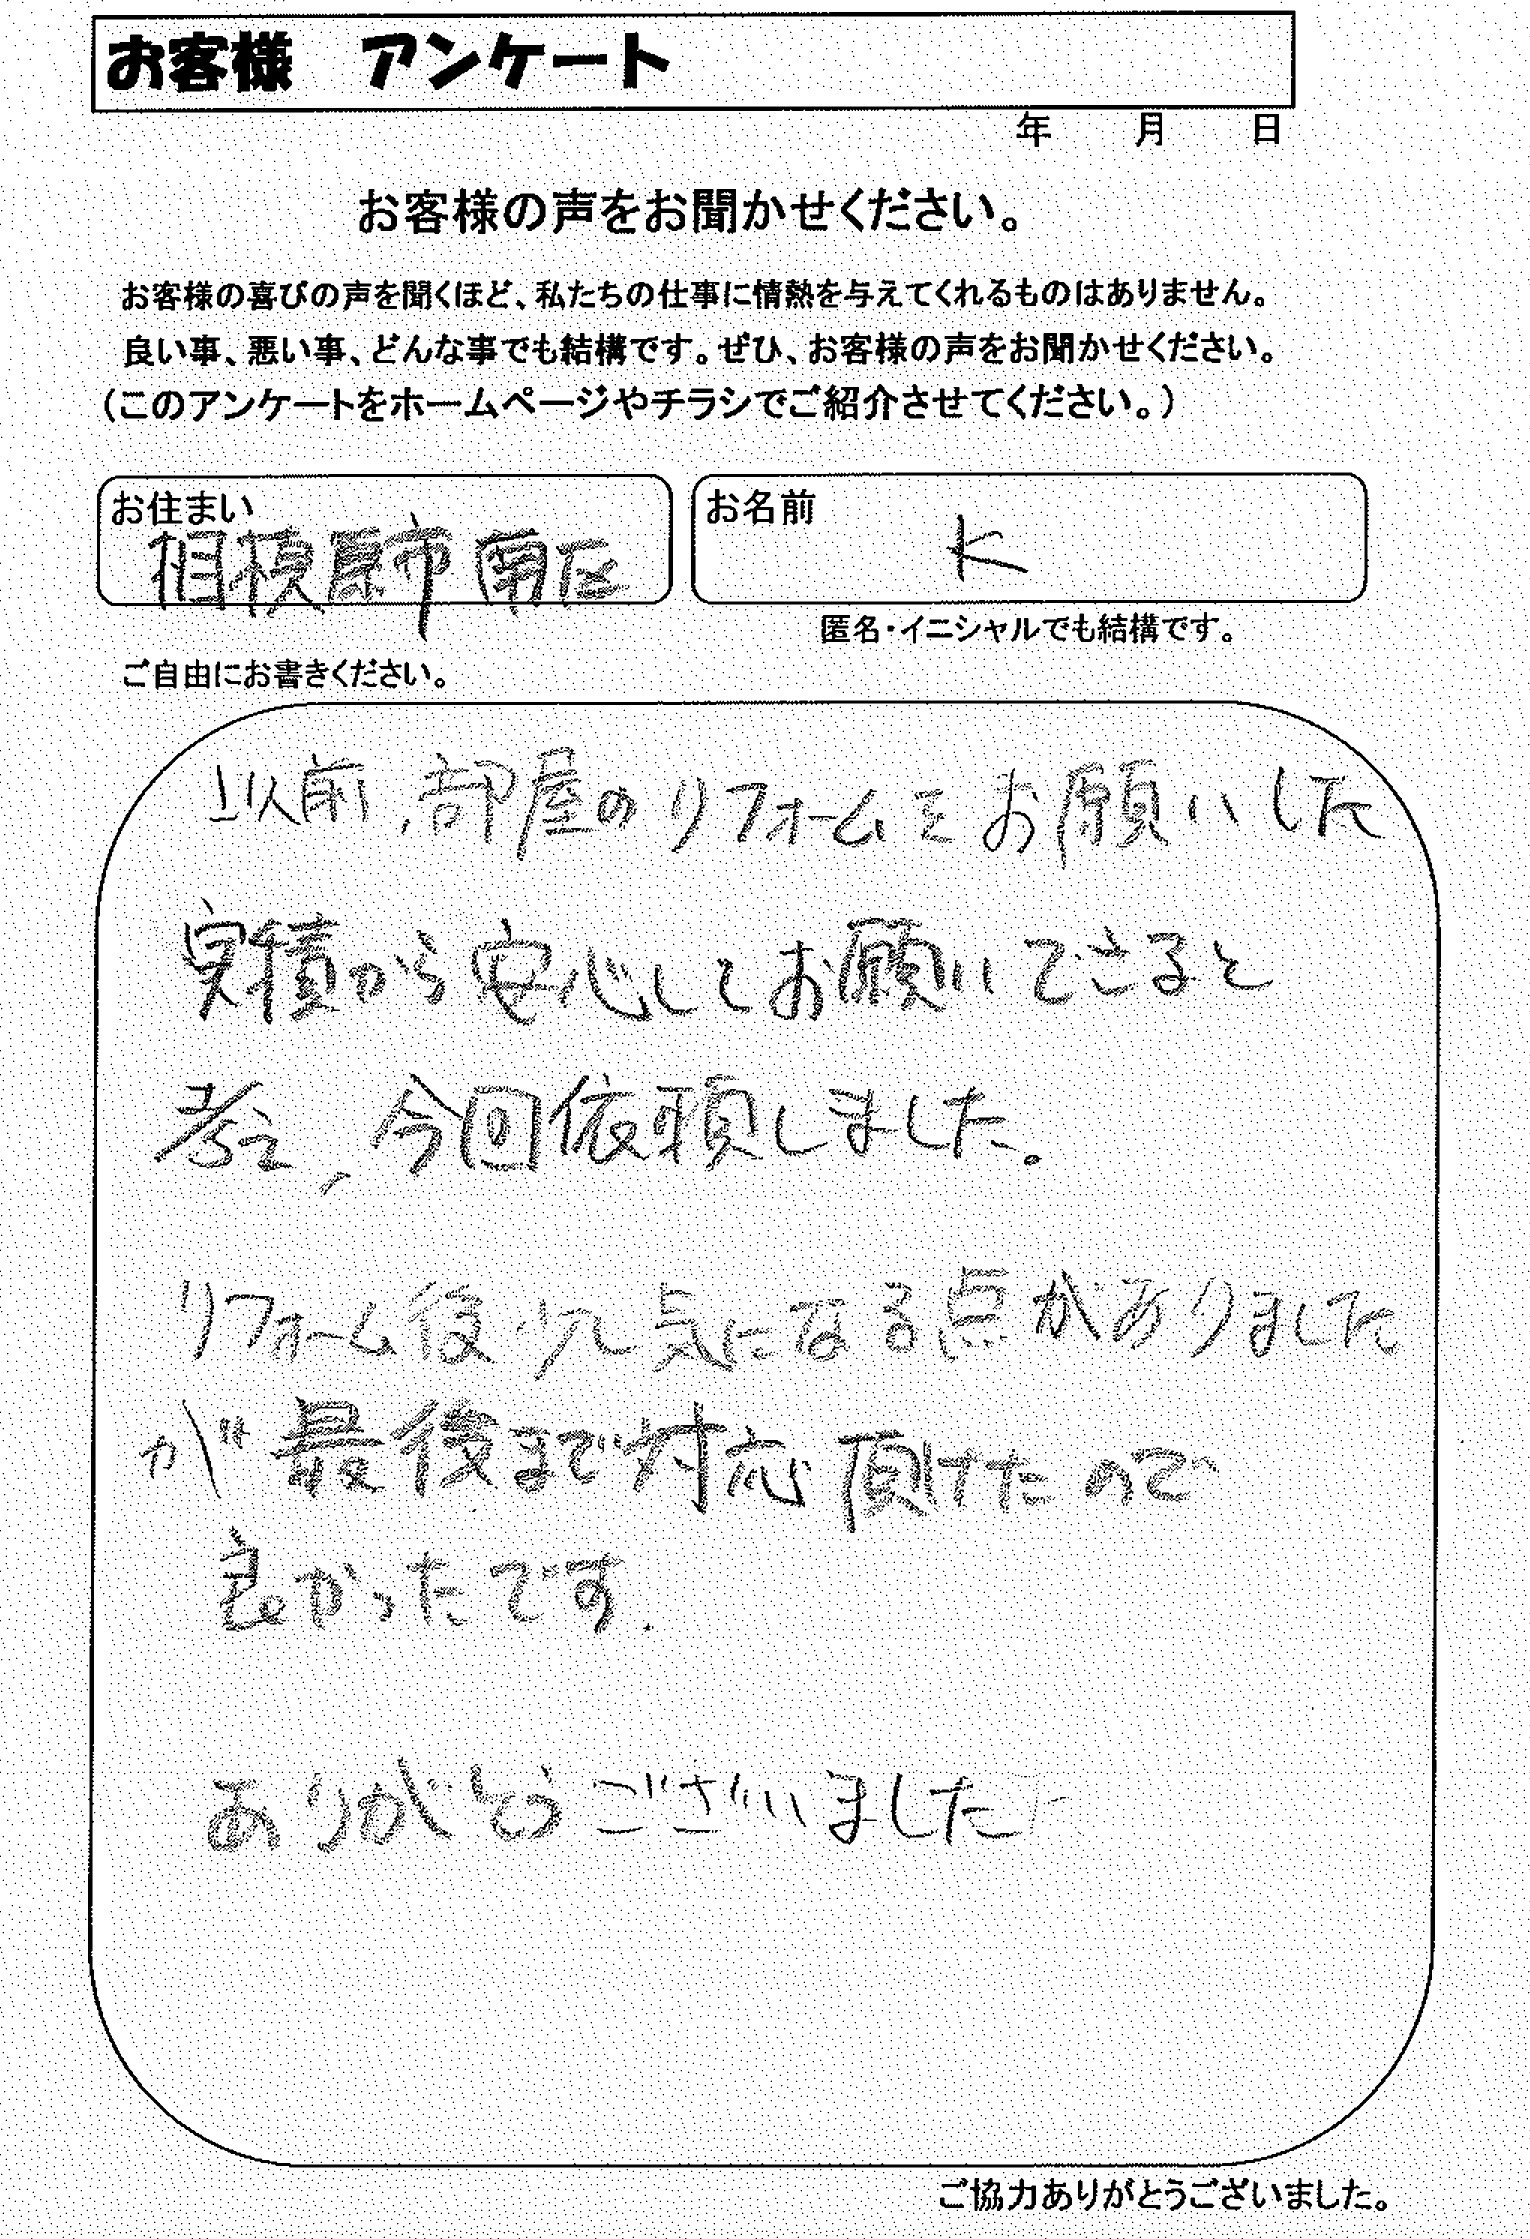 お客様　アンケート
年　月　日
お客様の声をお聞かせください。
お客様の喜びの声を聞くほど、私たちの仕事に情熱を与えてくれるものはありません。
良い事、悪い事、どんな事でも結構です。ぜひ、お客様の声をお聞かせください。
(このアンケートをホームページやチラシでご紹介させてください。)
お住まい
相模原市南区
お名前
K
匿名・イニシャルでも結構です。
ご自由にお書きください。
以前、部屋のリフォームをお願いした
実積から安心してお願いできると
考え、今回依頼しました。
リフォーム後少し気になる点がありました
が最後まで対応頂けたので
良かったです.
ありがとうございました
ご協力ありがとうございました。